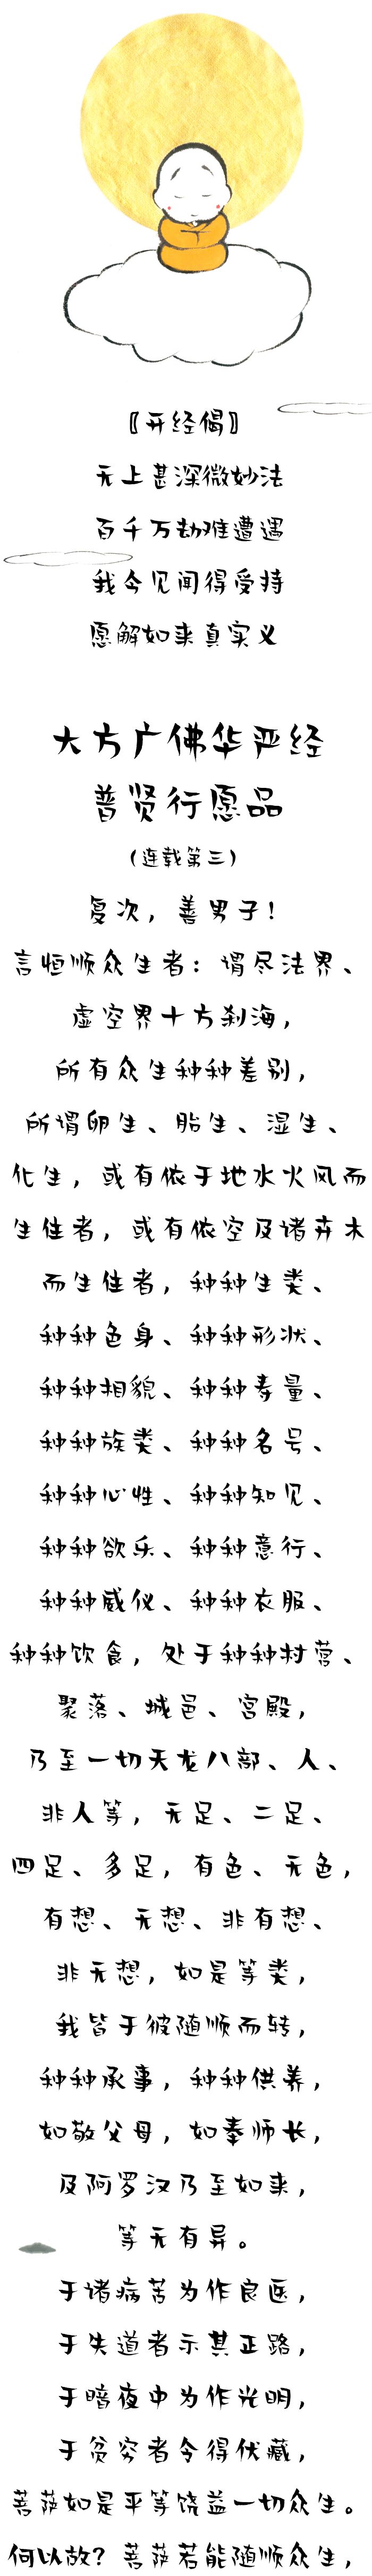 〖开经偈〗
无上甚深微妙法
百千万劫难遭遇
我今见闻得受持
愿解如来真实义
大方广佛华严经
普贤行愿品
(连载第三)
复次，善男子！
言恒顺众生者：谓尽法界、
虚空界十方刹海，
所有众生种种差别，
所谓卵生、胎生、湿生、
化生，或有依于地水火风而
生住者，或有依空及诸卉木
而生住者，种种生类、
种种色身、种种形状、
种种相貌、种种寿量、
种种族类、种种名号、
种种心性、种种知见、
种种欲乐、种种意行、
种种威仪、种种衣服、
种种饮食，处于种种村营、
聚落、城邑、宫殿，
乃至一切天龙八部、人、
非人等，无足、二足、
四足、多足，有色、无色，
有想、无想、非有想、
非无想，如是等类，
我皆于彼随顺而转，
种种承事，种种供养，
如敬父母，如奉师长，
及阿罗汉乃至如来，
等无有异。
于诸病苦为作良医，
于失道者示其正路，
于暗夜中为作光明，
于贫穷者令得伏藏，
菩萨如是平等饶益一切众生。
何以故？菩萨若能随顺众生，